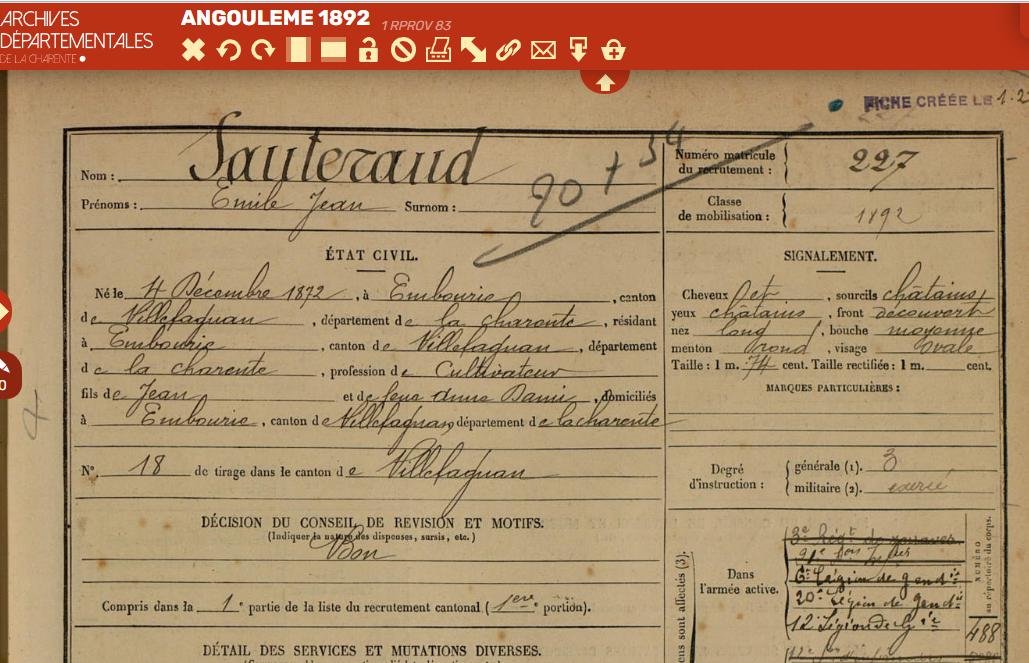 ARCHIVES
DÉPARTEMENTALES
DE LA CHARENTE
ANGOULEME 1892 1 RPROV 83
FICHE CRÉÉE LE 1.2
Nom : Sauteraud
Prénoms : Emile Jean Surnom :
90 + 54
Numéro matricule
du recrutement : 227
Classe
de mobilisation : 1892
ÉTAT CIVIL.
Né le 4 Décembre 1872, à Embourie, canton
de Villefagnan, département de la charente, résidant
à Embourie, canton de Villefagnan, département
de la charente, profession de Cultivateur
fils de Jean et de feue Anne, domiciliés
à Embourie, canton de Villefagnan, département de la charente
N° 18 de tirage dans le canton de Villefagnan
DÉCISION DU CONSEIL DE REVISION ET MOTIFS.
(Indiquer la nature des dispenses, sursis, etc.)
Bon
Compris dans la 1e partie de la liste du recrutement cantonal (1ere portion).
DÉTAIL DES SERVICES ET MUTATIONS DIVERSES.
SIGNALEMENT.
Cheveux et, sourcils châtains
yeux châtains, front découvert
nez long, bouche moyenne
menton rond, visage ovale
Taille : 1 m. 74 cent. Taille rectifiée : 1 m. cent.
MARQUES PARTICULIÈRES :
Degré
d'instruction :
générale (1). 3
militaire (2). exercé
Dans
l'armée active.
3e Régt de zouaves
6e Légion de Gendie
20e Légion de Gendie
12 Légion de Gie
488
NUMÉRO
au répertoire du corps.
sont affectés (3).